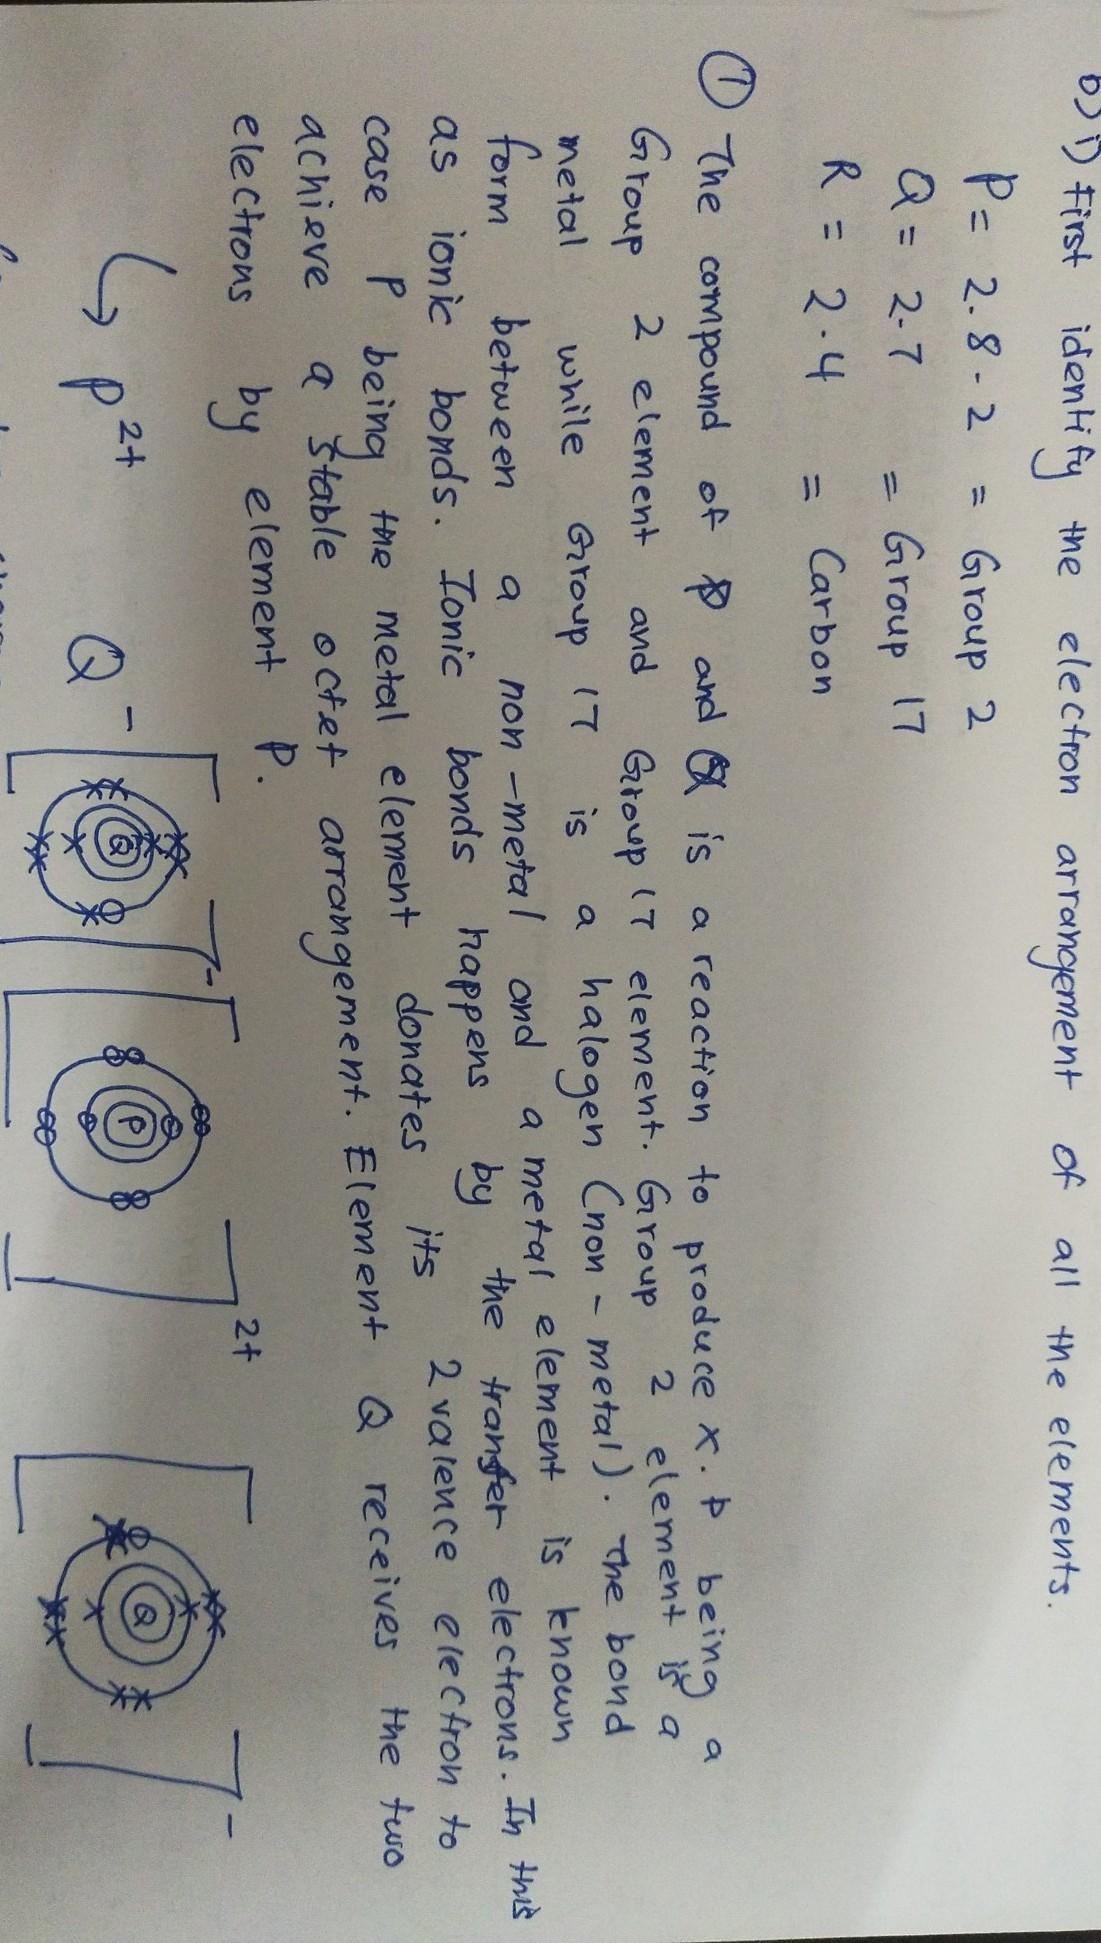 b) i) First identify the electron arrangement of all the elements.
P = 2.8.2 = Group 2
Q = 2.7 = Group 17
R = 2.4 = Carbon
① The compound of P and Q is a reaction to produce X. P being a
Group 2 element and Group 17 element. Group 2 element is a
metal while Group 17 is a halogen (non-metal). The bond
form between a non-metal and a metal element is known
as ionic bonds. Ionic bonds happens by the transfer electrons. In this
case P being the metal element donates its 2 valence electron to
achieve a stable octet arrangement. Element Q receives the two
electrons by element P.
↳ P²⁺ Q⁻
[Q]⁻ [P]²⁺ [Q]⁻